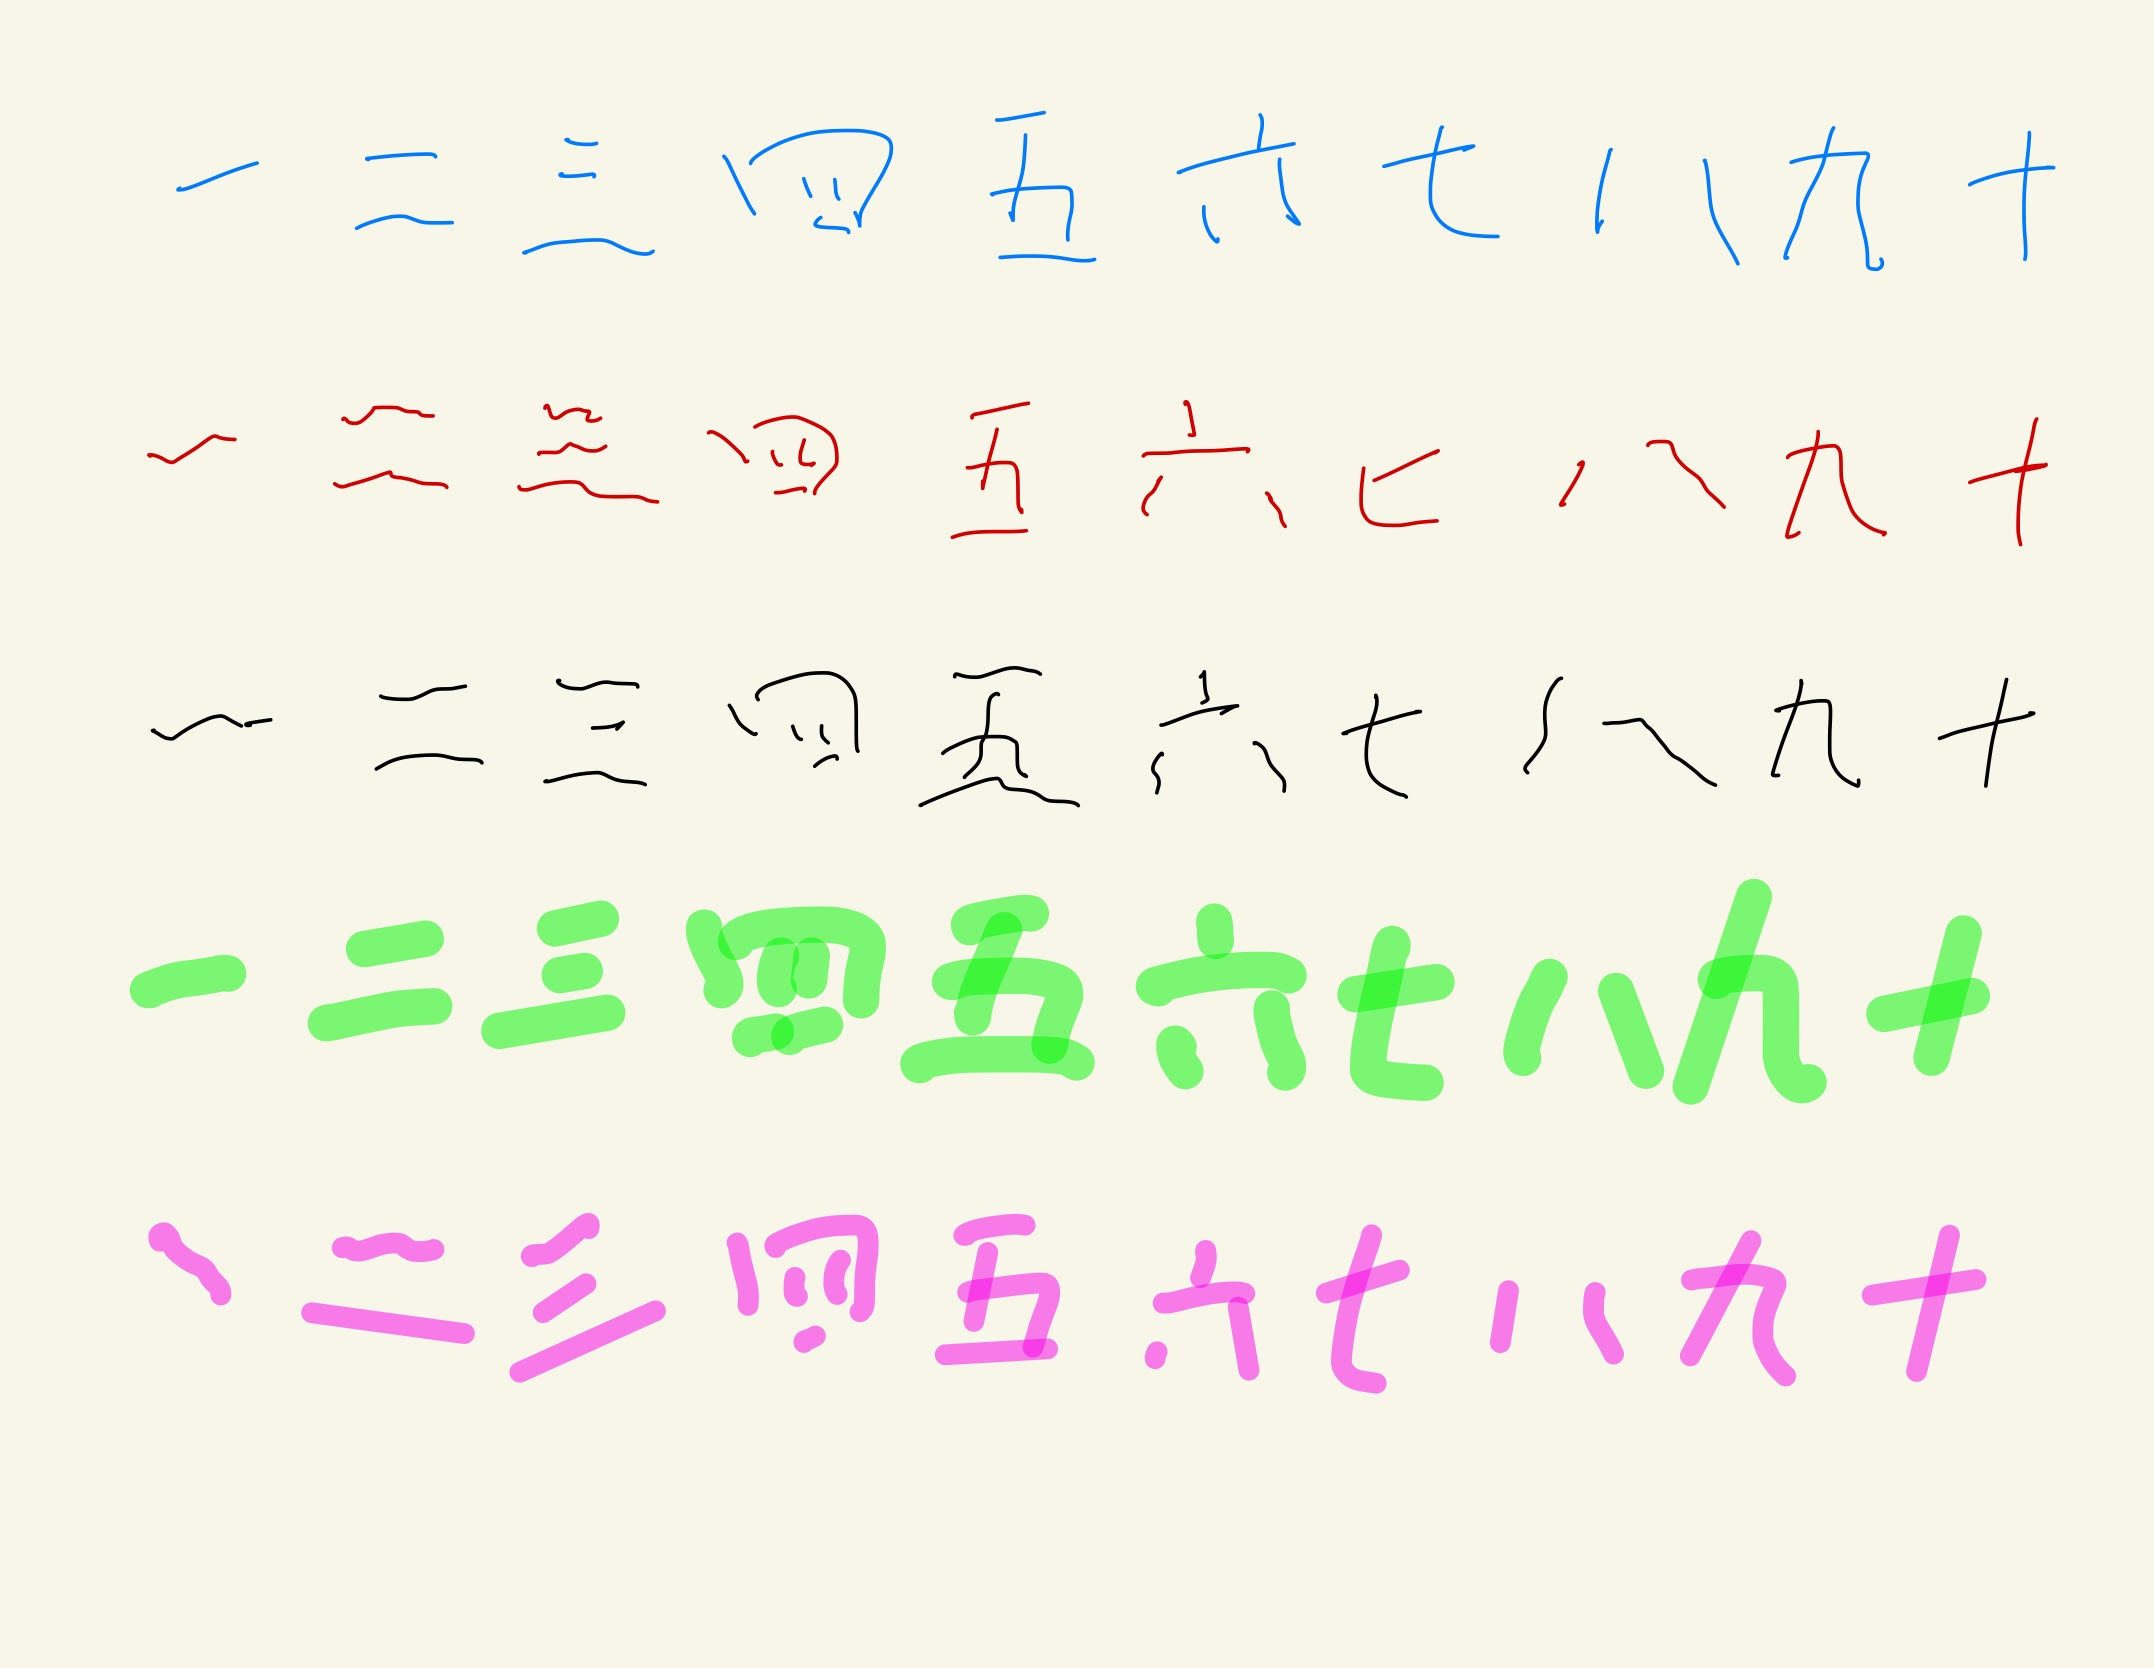 一二三四五六七八九十
一二三四五六七八九十
一二三四五六七八九十
一二三四五六七八九十
一二三四五六七八九十